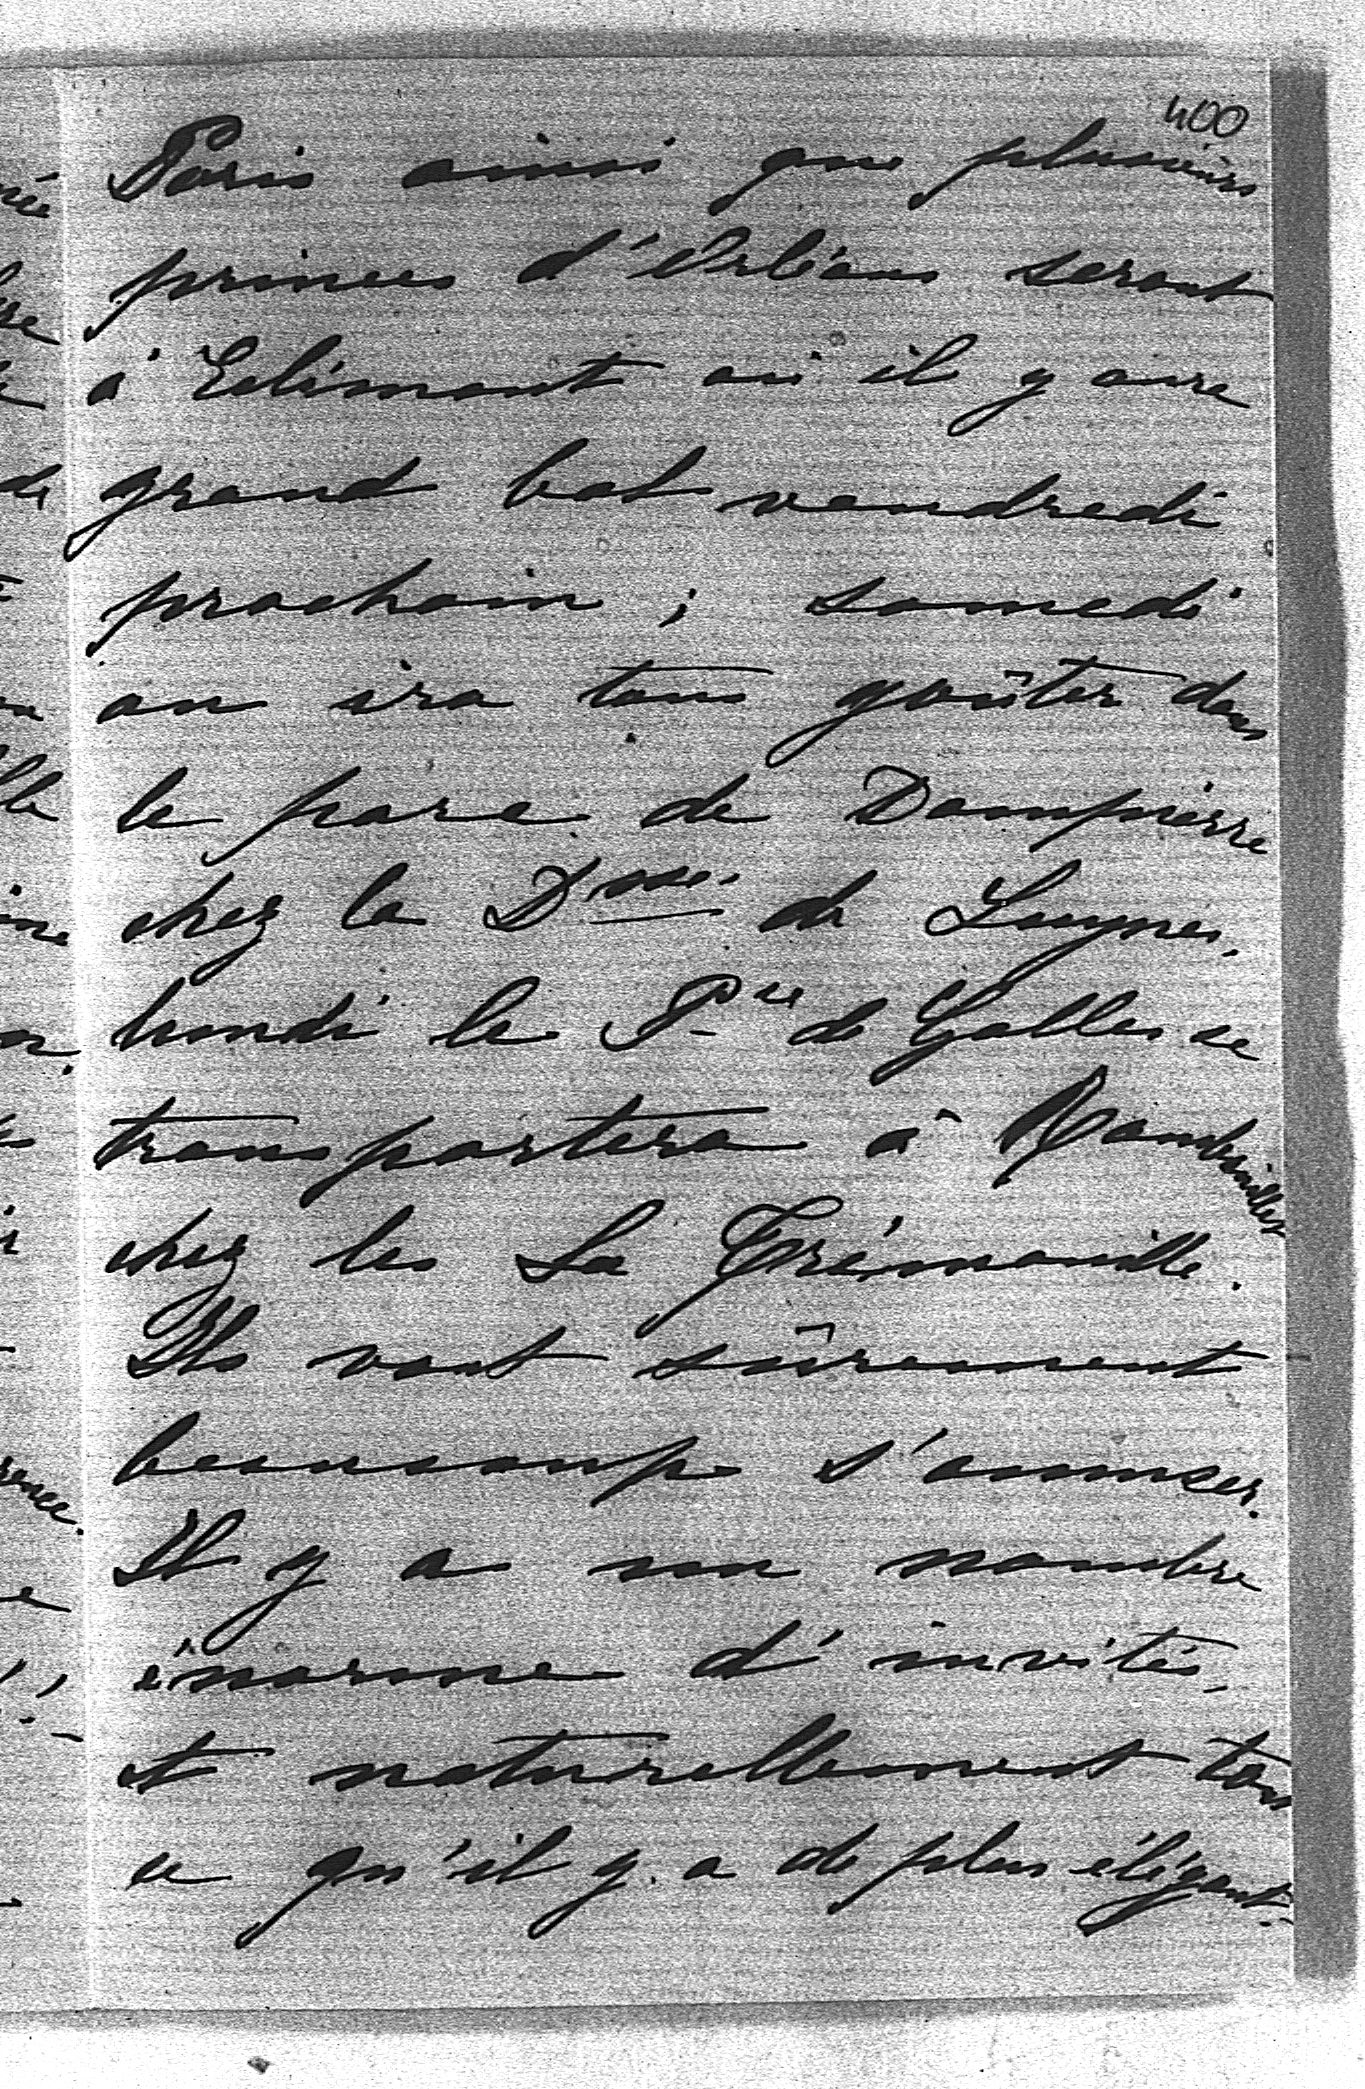 400
Paris ainsi que plusieurs
princes d'Orléans seront
à Eclimont où il y aura
grand bal vendredi
prochain ; samedi
on ira tous goûter dans
le parc de Dampierre
chez la Dsse. de Luynes.
lundi le Pce de Galles se
transportera à Rambouillet
chez les La Trémouille.
Ils vont sûrement
beaucoup s'amuser.
Il y a un nombre
énorme d'invités,
et naturellement tout
ce qu'il y a de plus élégant.